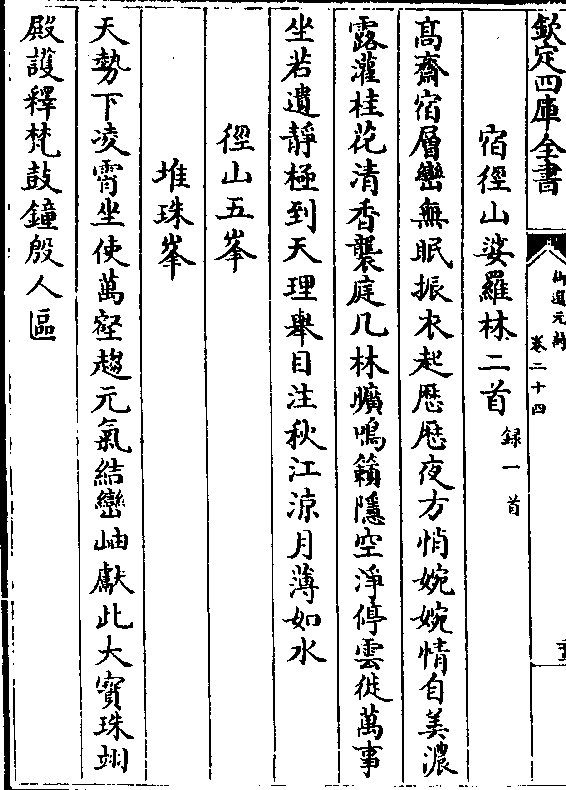 欽定四庫全書
御選元詩
卷二十四
宿徑山婆羅林二首
録一首
髙齋宿層巒無眠振衣起厯厯夜方悄婉婉情自美濃
露灌桂花清香襲庭几林曠鳴籟隱空淨停雲徙萬事
坐若遺靜極到天理舉目注秋江涼月薄如水
徑山五峯
堆珠峯
天勢下凌霄坐使萬壑趨元氣結巒岫獻此大寳珠翊
殿護釋梵鼓鐘殷人區